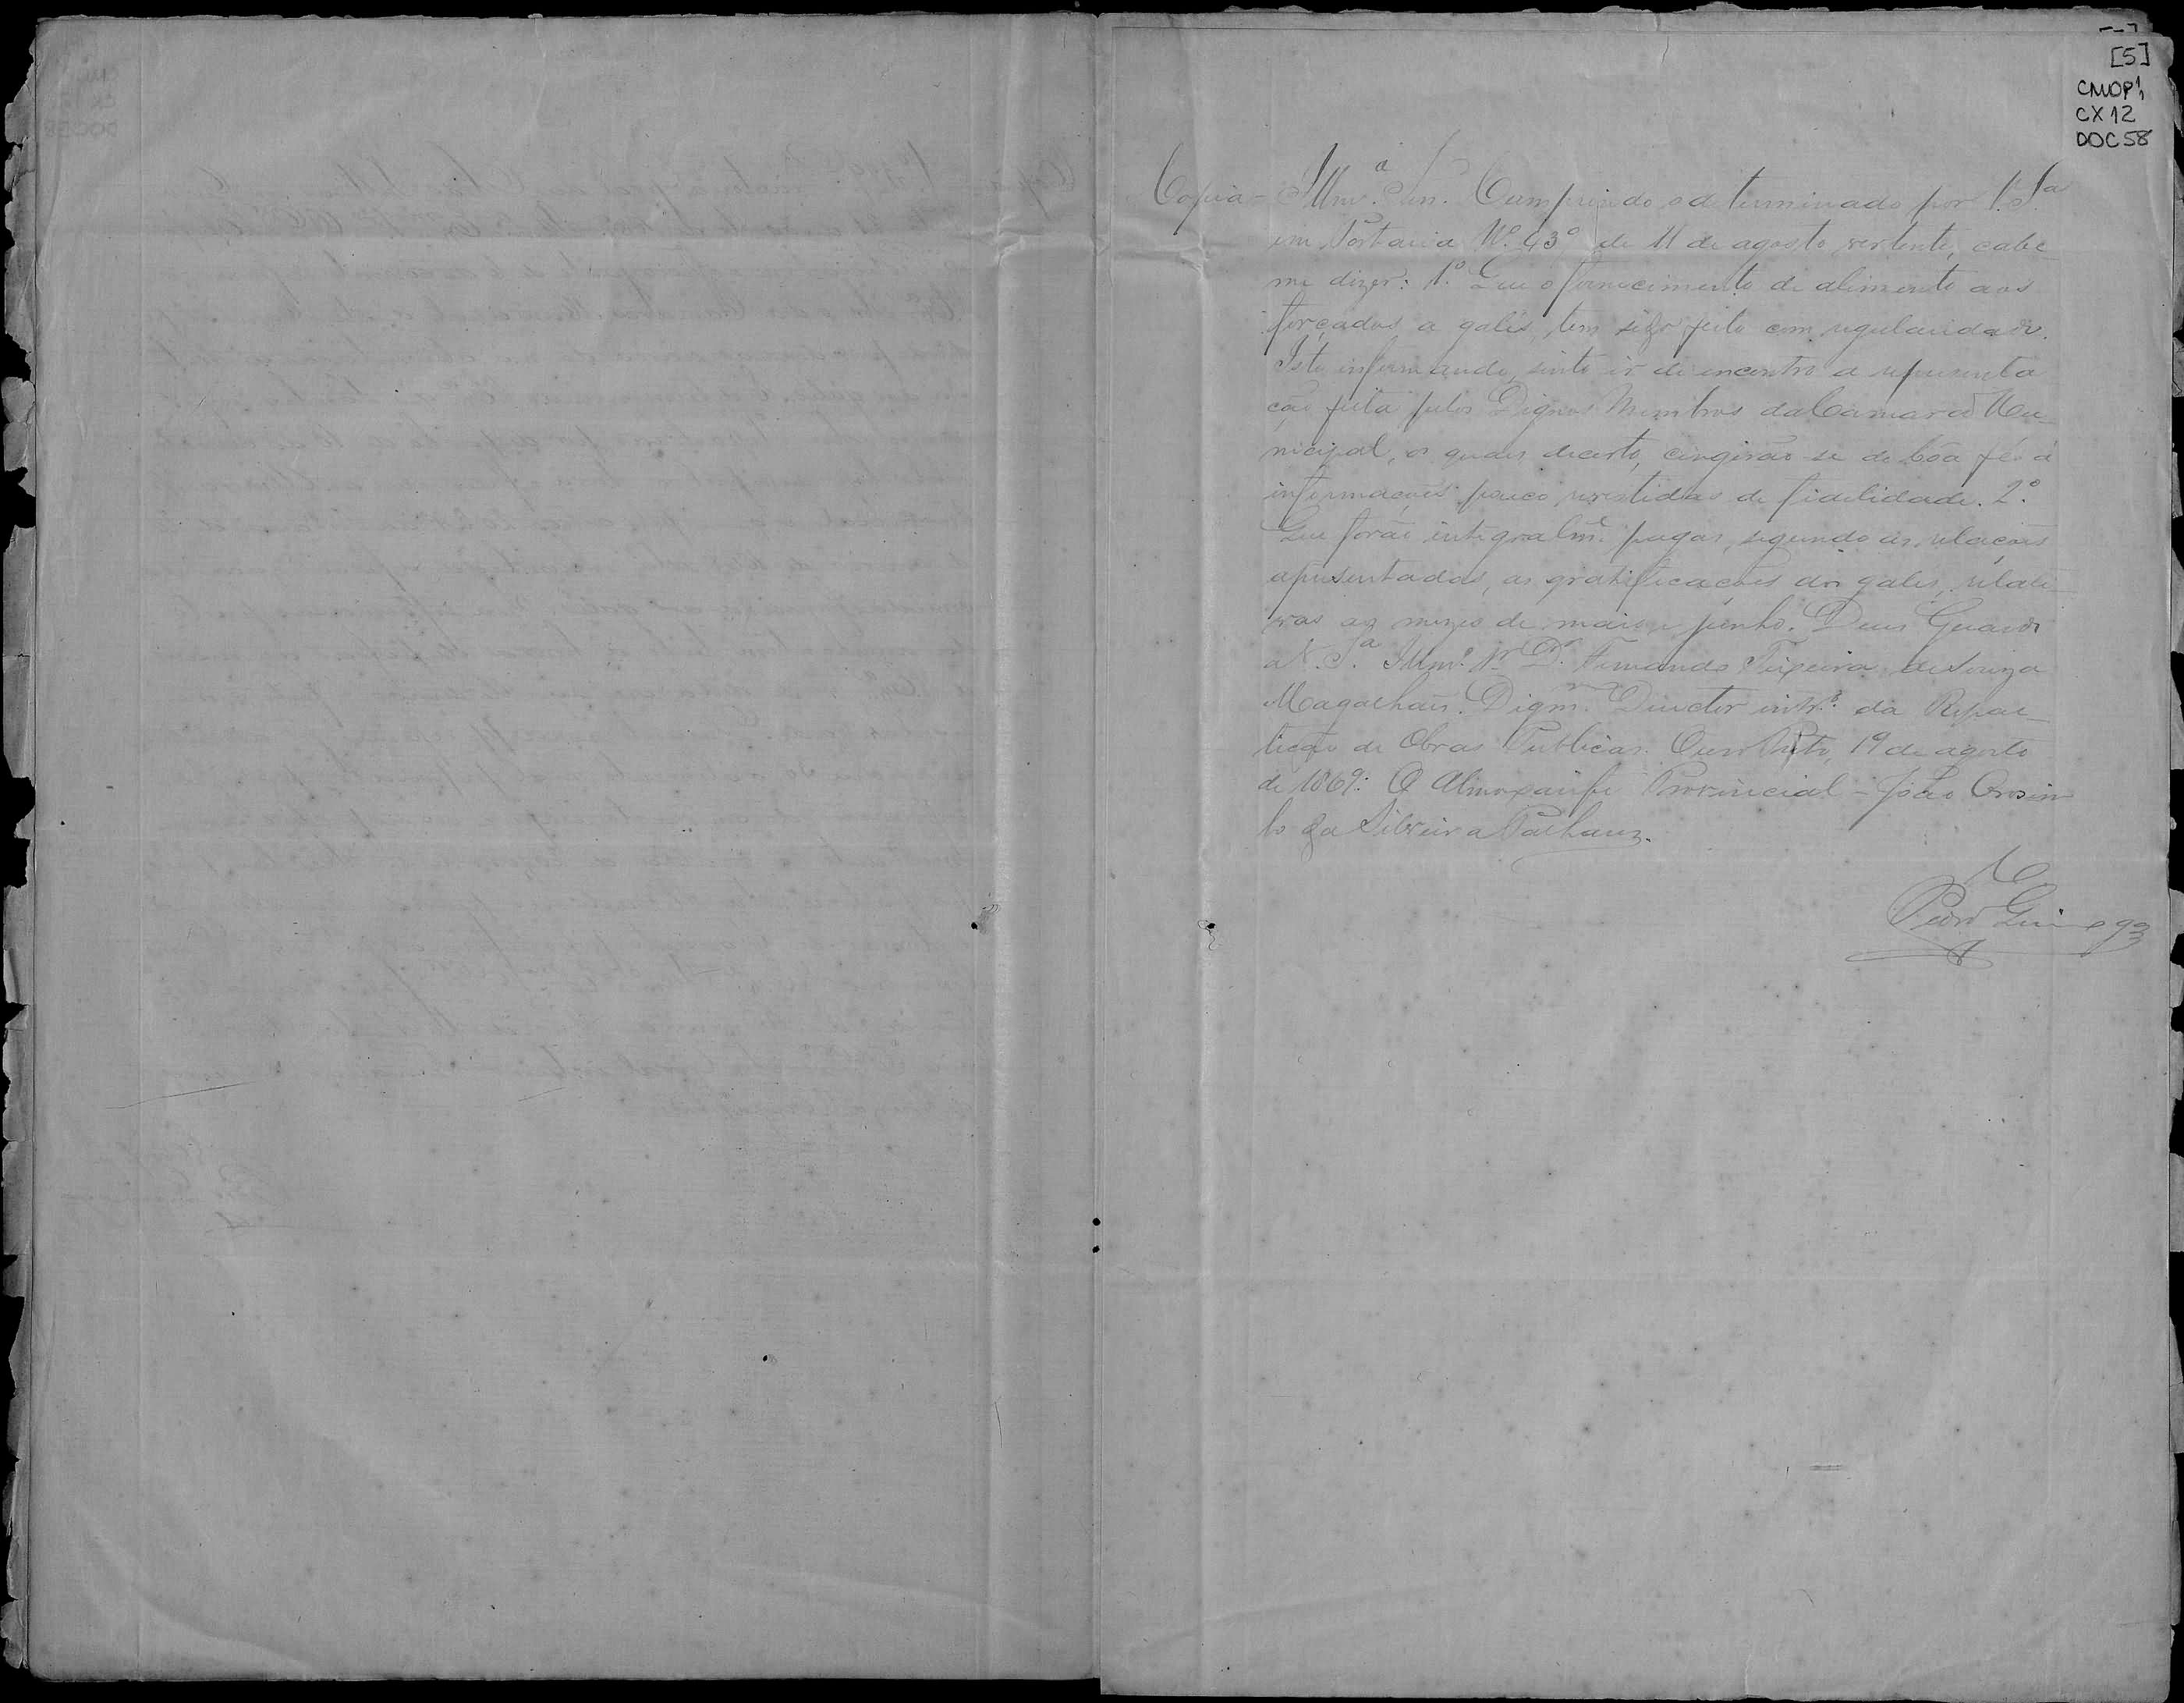 [5]
CMOP
CX 12
DOC 58
Copia - Illm.º Snr. Cumprindo o determinado por V. S.ª
em Portaria N.º 43 de 11 de agosto vertente, cabe-
me dizer: 1.º Que o fornecimento de alimento aos
forçados a galés, tem sido feito com regularidade.
Isto informando, sinto ir de encontro a representa
ção feita pelos Dignos Membros da Camara Mu-
nicipal, os quaes decerto, cingirão-se de bôa fé á
informações pouco revestidas de fidelidade. 2.º
Que forão integralm.e pagas, segundo as relações
apresentadas, as gratificações dos galés, relati-
vas aos mezes de maio e junho. Deus Guarde
a V. S.ª Illm.º Sr. Dr. Fernando Teixeira de Souza
Magalhães. Digm.º Director int.º da Repar-
tição de Obras Publicas. Ouro Preto, 19 de agosto
de 1869. O Almoxarife Provincial - João
da Silveira
Pedro